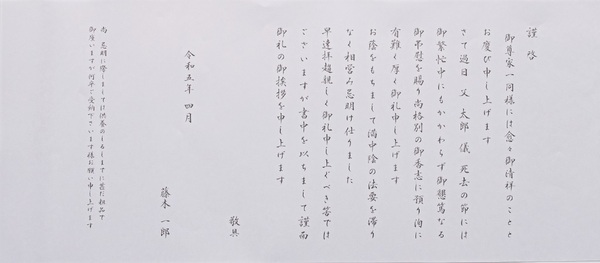 謹啓
御尊家一同様には愈々御清祥のことと
お慶び申し上げます
さて過日 父 太郎 儀 死去の節には
御繁忙中にもかかわらず御懇篤なる
御弔慰を賜り尚格別の御香志に預り洵に
有難く厚く御礼申し上げます
お蔭をもちまして満中陰の法要を滞り
なく相営み忌明け仕りました
早速拝趨親しく御礼申し上ぐべき筈では
ございますが書中を以ちまして謹而
御礼の御挨拶を申し上げます
敬具
令和五年 四月
藤木 一郎
尚 忌明に際しましては供養のしるしまでに甚だ粗品で
御座いますが何卒ご受納下さいます様お願い申し上げます